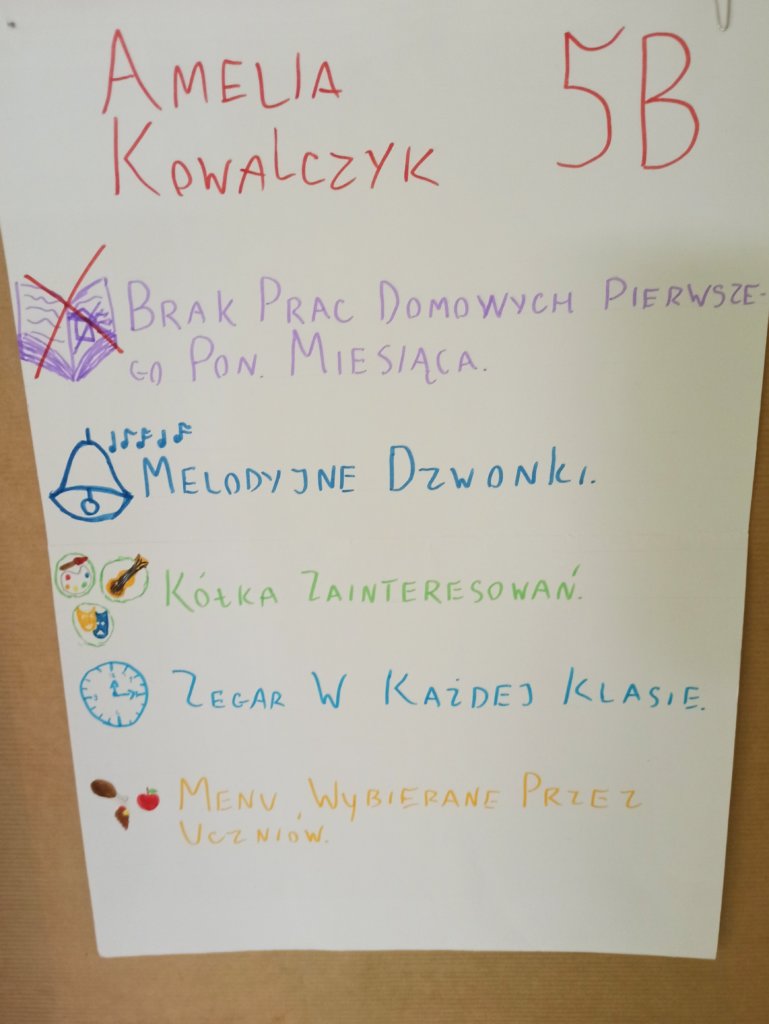 AMELIA
KOWALCZYK
5B
BRAK PRAC DOMOWYCH PIERWSZE-
GO PON. MIESIĄCA.
MELODYJNE DZWONKI.
KÓŁKA ZAINTERESOWAŃ.
ZEGAR W KAŻDEJ KLASIE.
MENU WYBIERANE PRZEZ
UCZNIÓW.